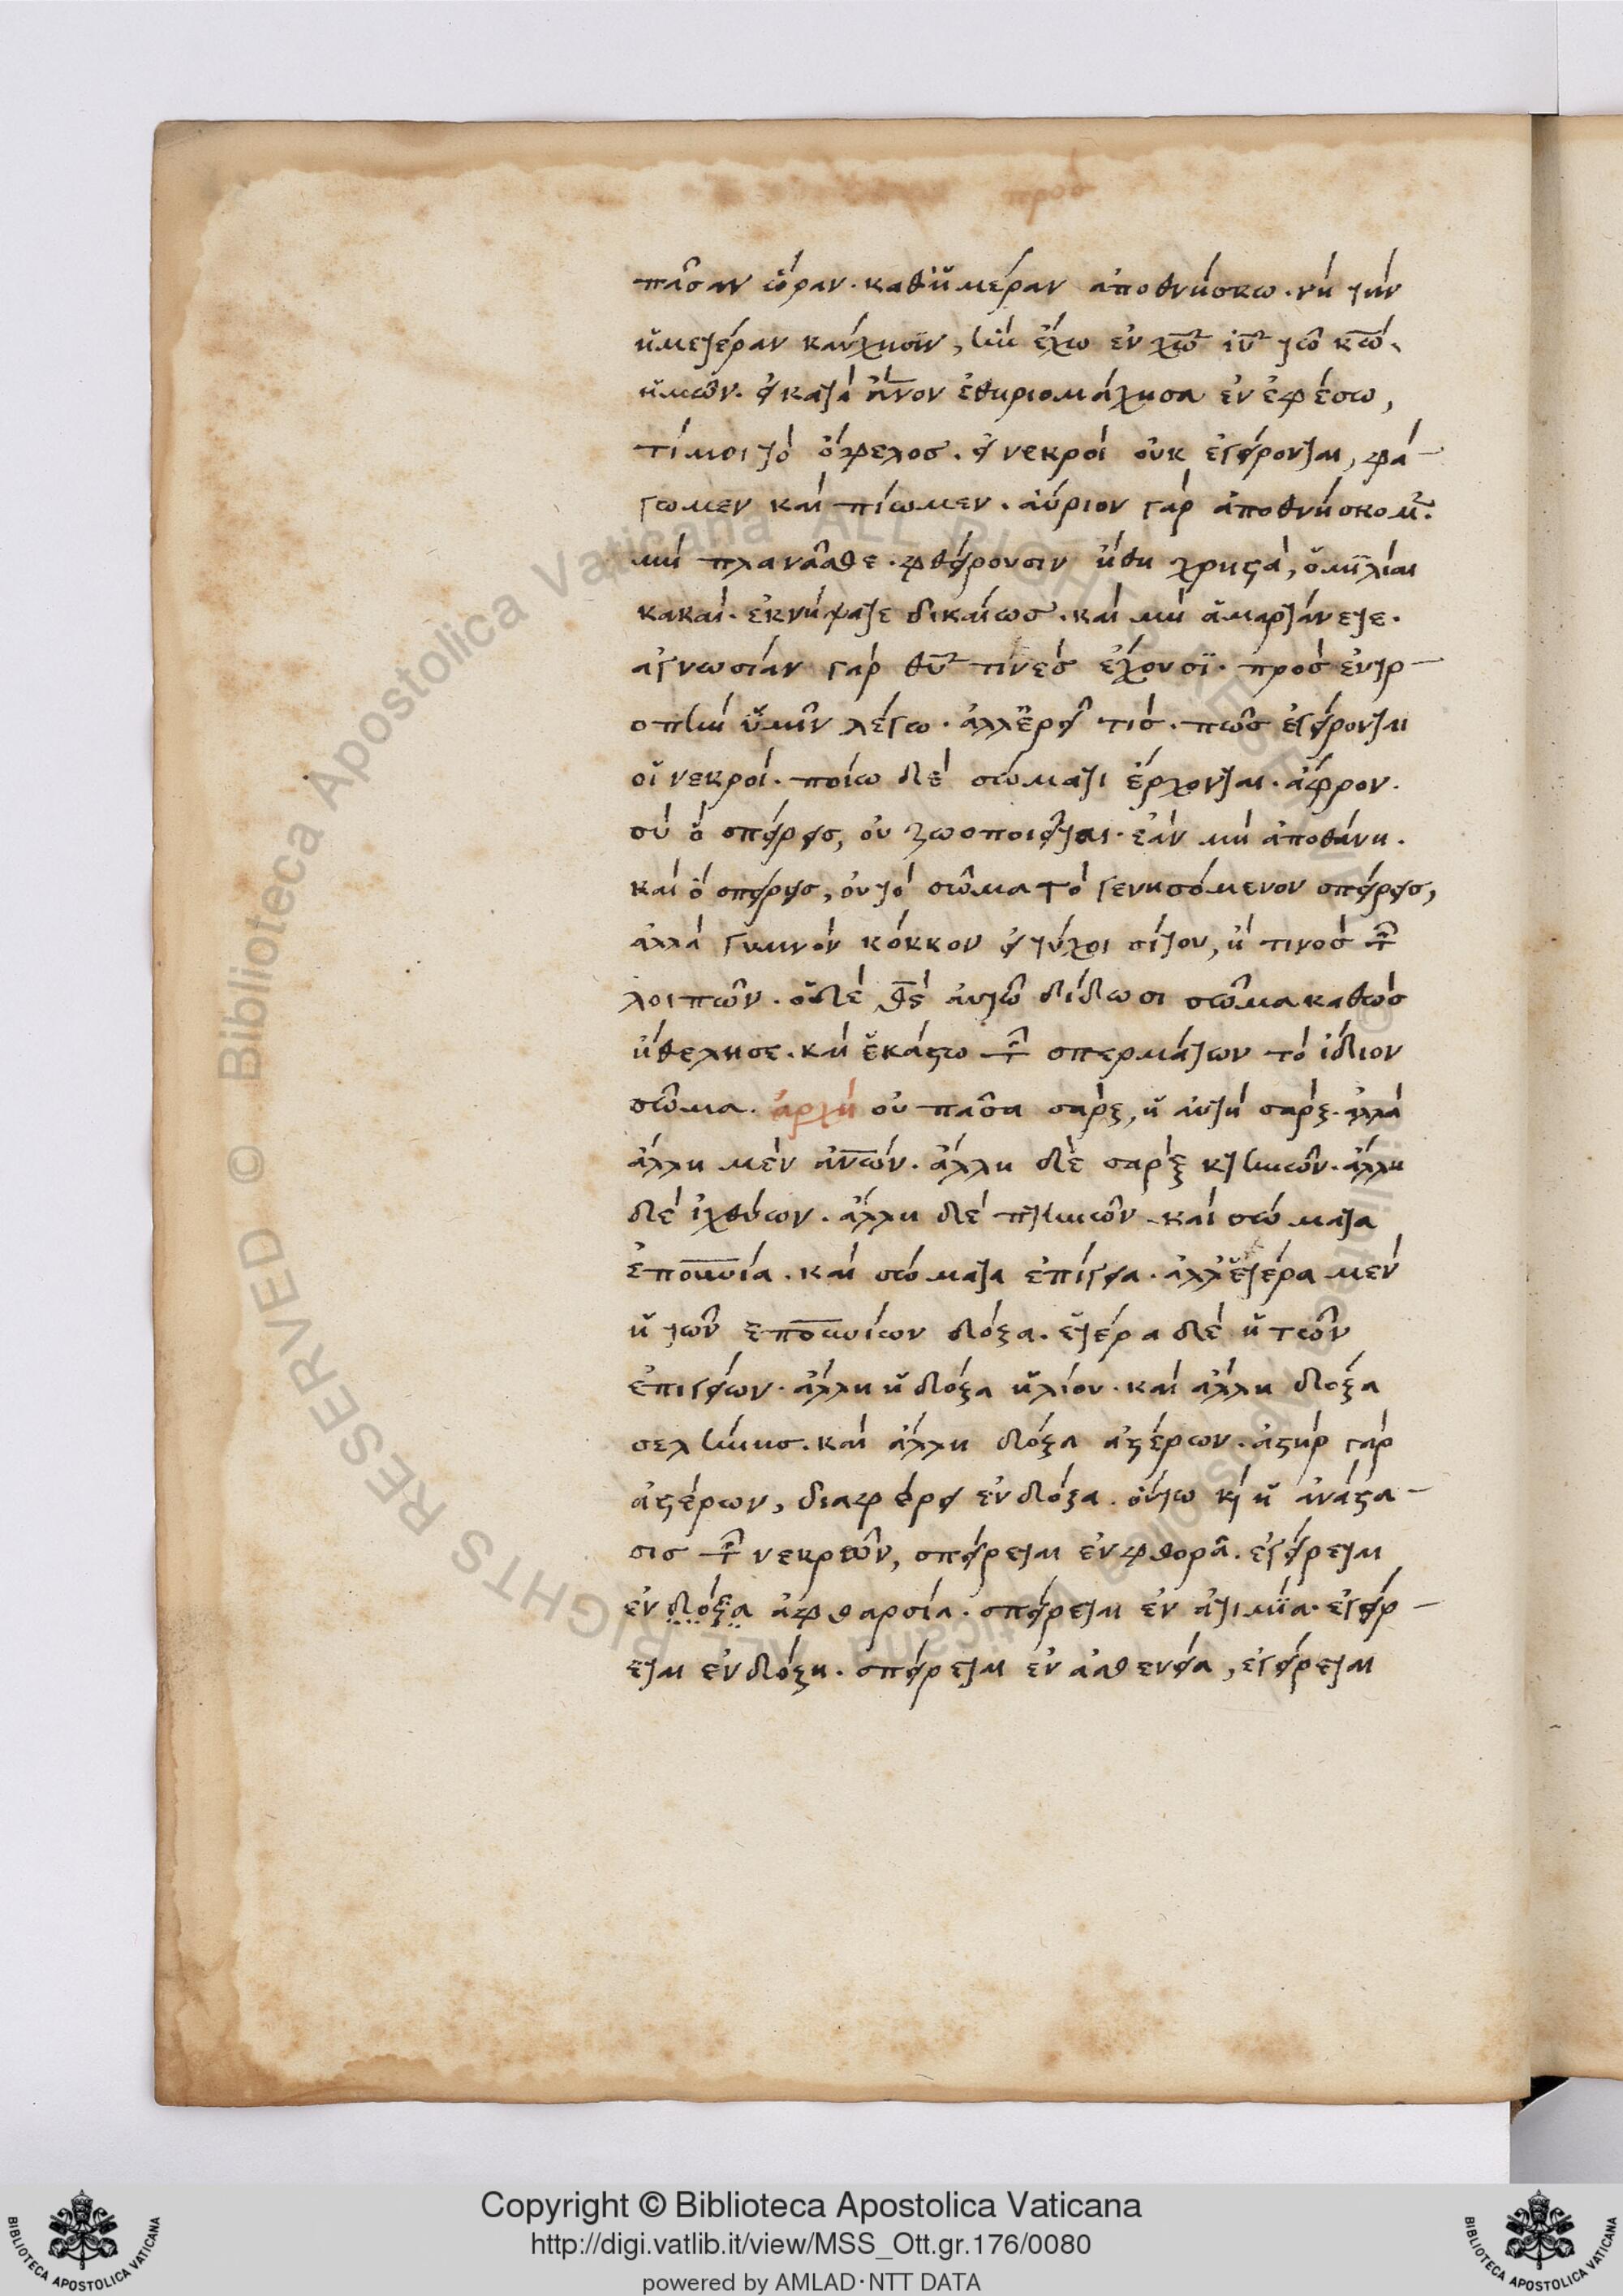 πᾶσαν ὥραν. καθ ἡμέραν ἀποθνήσκω. νὴ τὴν
ἡμετέραν καύχησιν, ἣν ἔχω ἐν χ̅ω ι̅υ τῶ κ̅ω
ἡμῶν. εἰ κατὰ α̅ν̅ον ἐθηριομάχησα ἐν ἐφέσω,
τί μοι τὸ ὄφελος. εἰ νεκροὶ οὐκ ἐγείρονται, φά
γωμεν καὶ πίωμεν. αὔριον γὰρ ἀποθνήσκομ̅.
μὴ πλανᾶσθε. φθείρουσιν ἤθη χρηστὰ, ὁμιλίαι
κακαί. ἐκνήψατε δικαίως. καὶ μὴ ἁμαρτάνετε.
ἀγνωσίαν γὰρ θ̅υ τινὲς ἔχουσϊ. πρὸς ἐντρ
οπὴν ὑμῖν λέγω. ἀλλ ἐρεῖ τίς. πῶς ἐγείρονται
οἱ νεκροί. ποίω δὲ σώματι ἔρχονται. ἄφρον.
σὺ ὃ σπείρεις, οὐ ζωοποιεῖται. ἐὰν μὴ ἀποθάνη.
καὶ ὃ σπείρεις, οὐ τὸ σῶμα τὸ γενησόμενον σπείρεις,
ἀλλὰ γυμνὸν κόκκον εἰ τύχοι σίτου, ἤ τινος τ̅
λοιπῶν. ὁ δὲ θ̅ς αὐτῶ δίδωσι σῶμα καθὼς
ἠθέλησε. καὶ ἑκάστω τ̅ σπερμάτων τὸ ἴδιον
σῶμα. ἀρχὴ οὐ πᾶσα σὰρξ, ἡ αὐτὴ σάρξ. ἀλλὰ
ἄλλη μὲν α̅ν̅ων. ἄλλη δὲ σὰρξ κτηνῶν. ἄλλη
δὲ ἰχθύων. ἄλλη δὲ πτηνῶν. καὶ σώματα
ἐπο̅υ̅νία. καὶ σώματα ἐπίγεια. ἀλλ ἑτέρα μὲν
ἡ τῶν ἐπο̅υνίων δόξα. ἑτέρα δὲ ἡ τῶν
ἐπιγείων. ἄλλη ἡ δόξα ἡλίου. καὶ ἄλλη δόξα
σελήνης. καὶ ἄλλη δόξα ἀστέρων. ἀστὴρ γὰρ
ἀστέρων, διαφέρει ἐν δόξα. οὕτω κ̀ ἡ ἀνάστα
σις τ̅ νεκρῶν, σπείρεται ἐν φθορᾶ. ἐγείρεται
ἐν δόξα ἀφθαρσία. σπείρεται ἐν ἀτιμία. ἐγείρ
εται ἐν δόξη. σπείρεται ἐν ἀσθενεία, ἐγείρεται
© Biblioteca Apostolica Vaticana ALL RIGHTS RESERVED
Copyright © Biblioteca Apostolica Vaticana
http://digi.vatlib.it/view/MSS_Ott.gr.176/0080
powered by AMLAD·NTT DATA
BIBLIOTECA APOSTOLICA VATICANA
BIBLIOTECA APOSTOLICA VATICANA